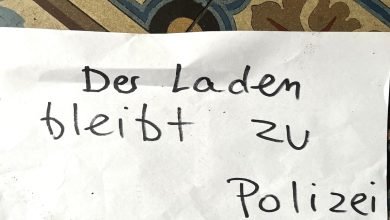 Der Laden
bleibt zu
Polizei